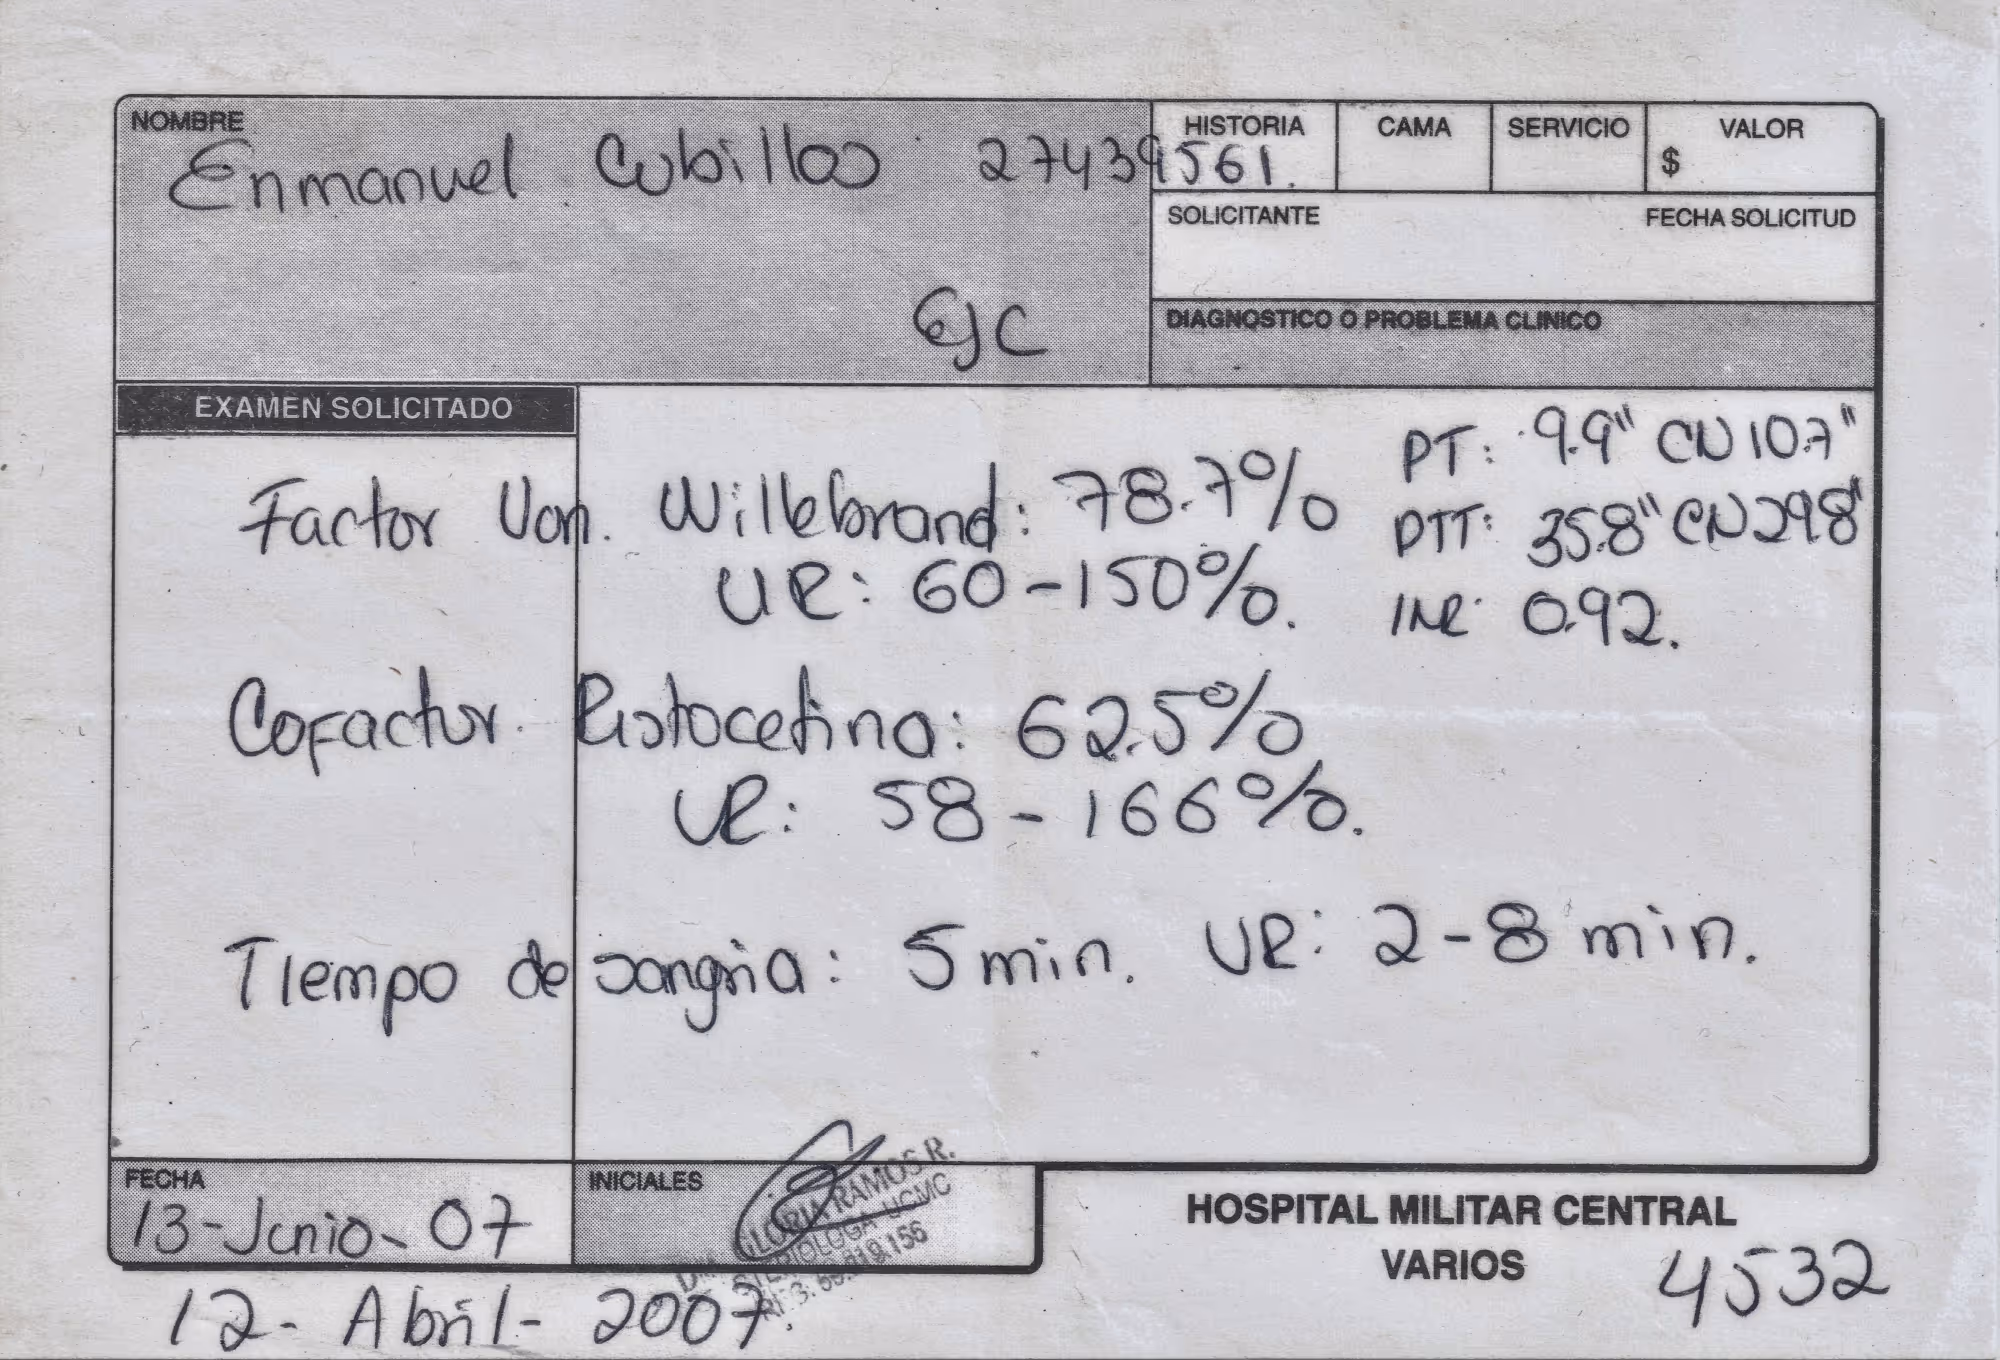 NOMBRE
Enmanuel Cubillos 27439561.
EJC
HISTORIA
CAMA
SERVICIO
VALOR
$
SOLICITANTE
FECHA SOLICITUD
DIAGNOSTICO O PROBLEMA CLINICO
EXAMEN SOLICITADO
Factor Von. Willebrand: 78.7%
UR: 60-150%.
PT: 9.9" CN 10.7"
PTT: 35.8" CN 29.8"
INR: 0.92.
Cofactor. Ristocetina: 62.5%
VR: 58-166%.
Tiempo de sangria: 5 min. VR: 2-8 min.
FECHA
13-Junio-07
12-Abril-2007.
INICIALES
GLORIA RAMOS R.
HCMC
HOSPITAL MILITAR CENTRAL
VARIOS
4532